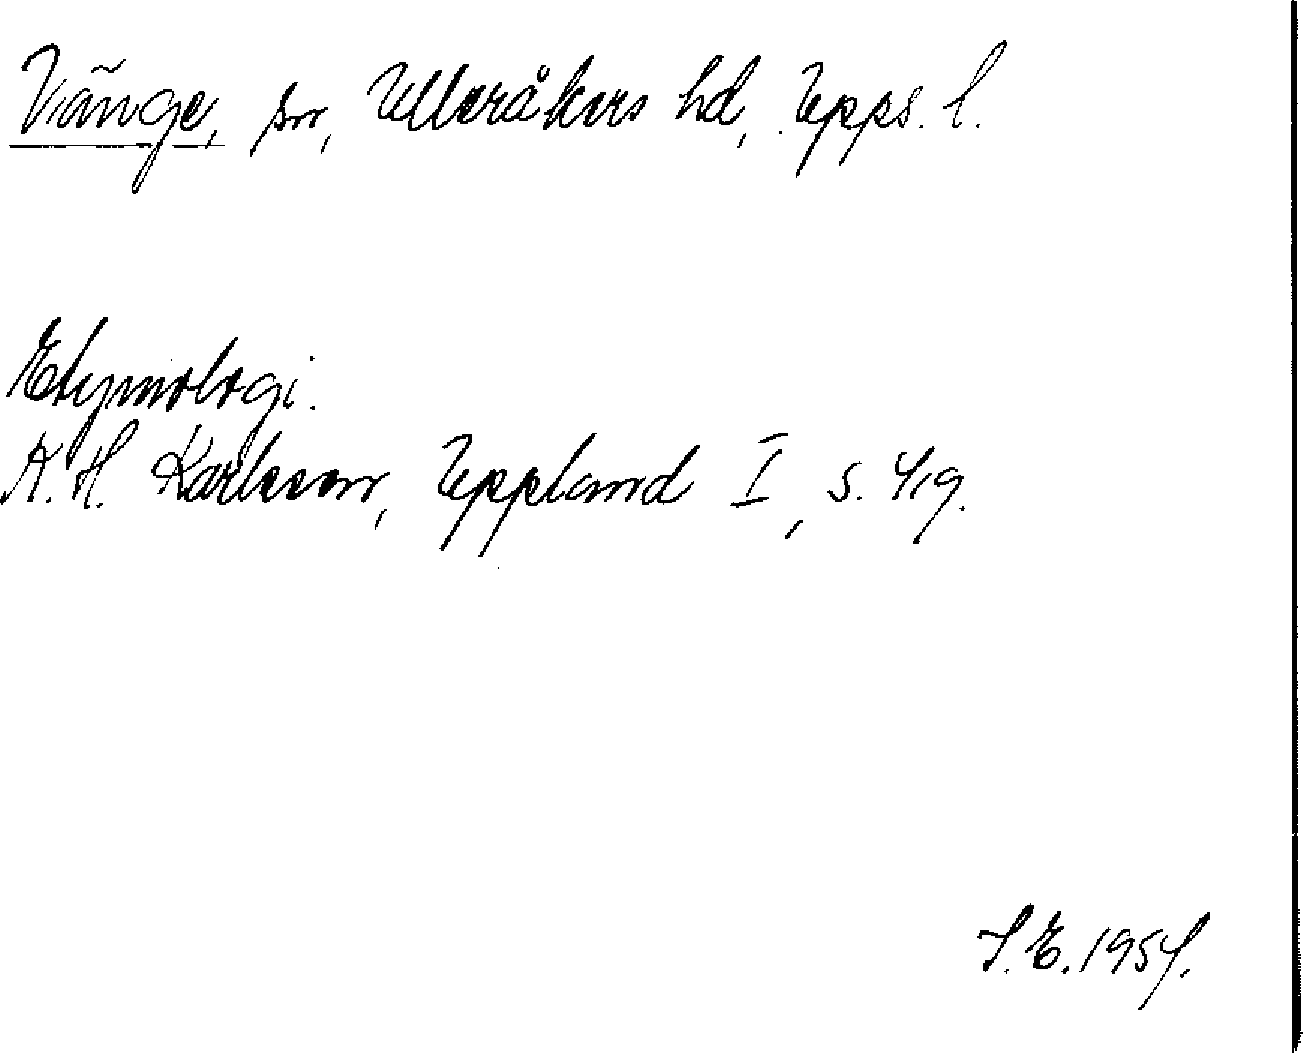 Vänge, sn, Ulleråkers hd, Upps. l.
Etymologi.
K. H. Karlsson, Uppland I, s. 419.
S. E. 1954.